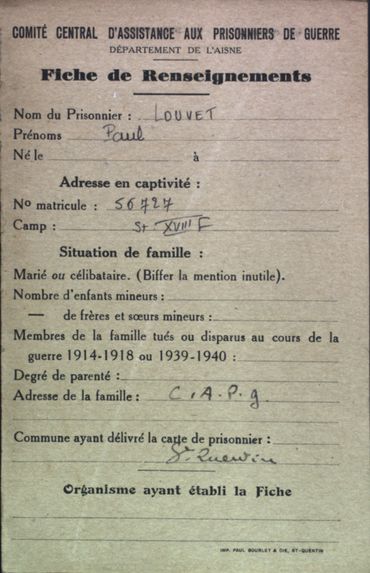 COMITÉ CENTRAL D'ASSISTANCE AUX PRISONNIERS DE GUERRE
DÉPARTEMENT DE L'AISNE
Fiche de Renseignements
Nom du Prisonnier : LOUVET
Prénoms Paul
Né le à
Adresse en captivité :
No matricule : 56727
Camp : St XVIII F
Situation de famille :
Marié ou célibataire. (Biffer la mention inutile).
Nombre d'enfants mineurs :
— de frères et sœurs mineurs :
Membres de la famille tués ou disparus au cours de la
guerre 1914-1918 ou 1939-1940 :
Degré de parenté :
Adresse de la famille : C.A.P.g
Commune ayant délivré la carte de prisonnier :
St Quentin
Organisme ayant établi la Fiche
IMP. PAUL BOURLET & CIE, ST-QUENTIN